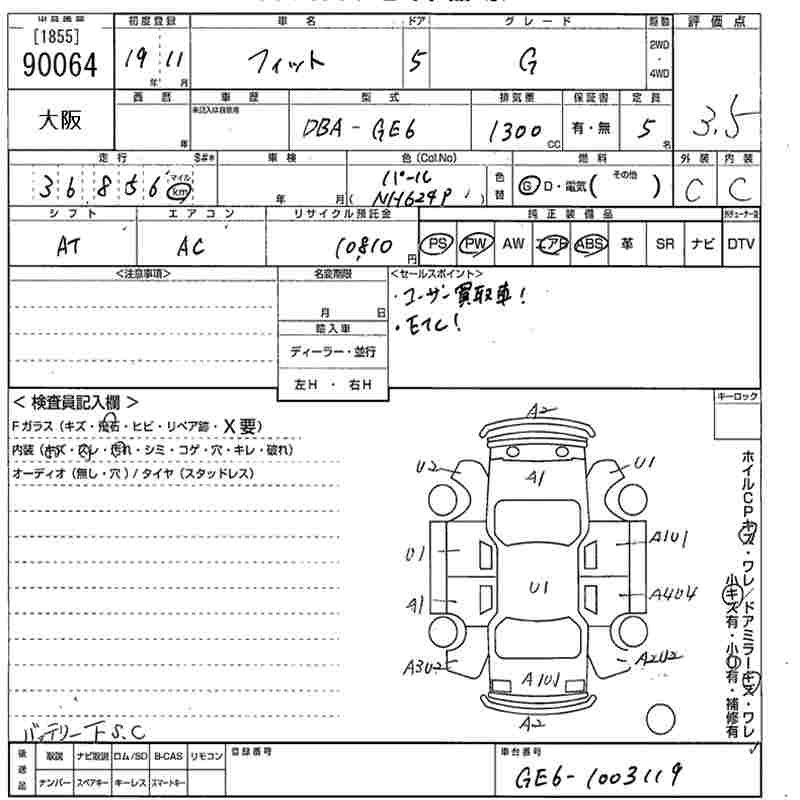 [1855]
90064
大阪
初度登録 車名 ドア グレード 駆動 評価点
19 11 フィット 5 G 2WD ・ 4WD 3.5
年 月
西暦 車歴 型式 排気量 保証書 定員
未記入は自家用
年 DBA-GE6 1300 CC 有・無 5 名
走行 S#* 車検 色(Col.No) 燃料 外装 内装
36,856 マイル km 年 月( パール NH624P ) 色替 G D・電気( その他 ) C C
シフト エアコン リサイクル預託金 純正装備品
AT AC 10,810 円 PS PW AW エアB ABS 革 SR ナビ DTV
<注意事項> 名変期限 <セールスポイント>
月 日 ・ユーザー買取車!
輸入車 ・ETC!
ディーラー・並行
左H ・ 右H
<検査員記入欄> キーロック
Fガラス(キズ・飛石・ヒビ・リペア跡・X要)
内装(キズ・汚れ・シミ・コゲ・穴・キレ・破れ)
オーディオ(無し・穴)/タイヤ(スタッドレス)
A2
U2 A1 U1
U1 A1U1
A1 U1 A4U4
A3U2 A1U1 A2U2
A2
ホイルCPキズ・ワレ/ドアミラーキズ・ワレ
小キズ有・小U有・補修有
バッテリー下S.C
後送品 取説 ナビ取説 ロム/SD B-CAS リモコン 登録番号 車台番号
ナンバー スペアキー キーレス スマートキー GE6-1003119